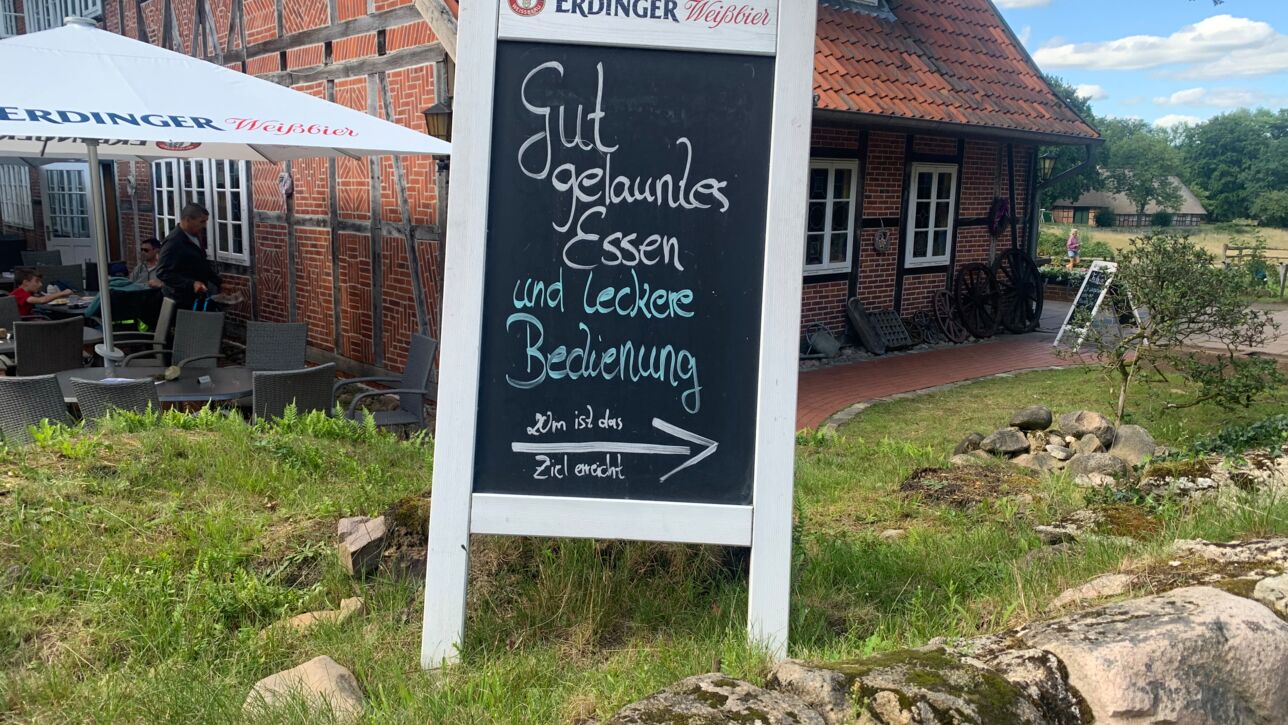 ERDINGER Weißbier
ERDINGER Weißbier
Gut
gelauntes
Essen
und leckere
Bedienung
20m ist das
Ziel erreicht